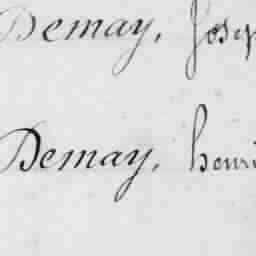 Demay, Josep
Demay, henri